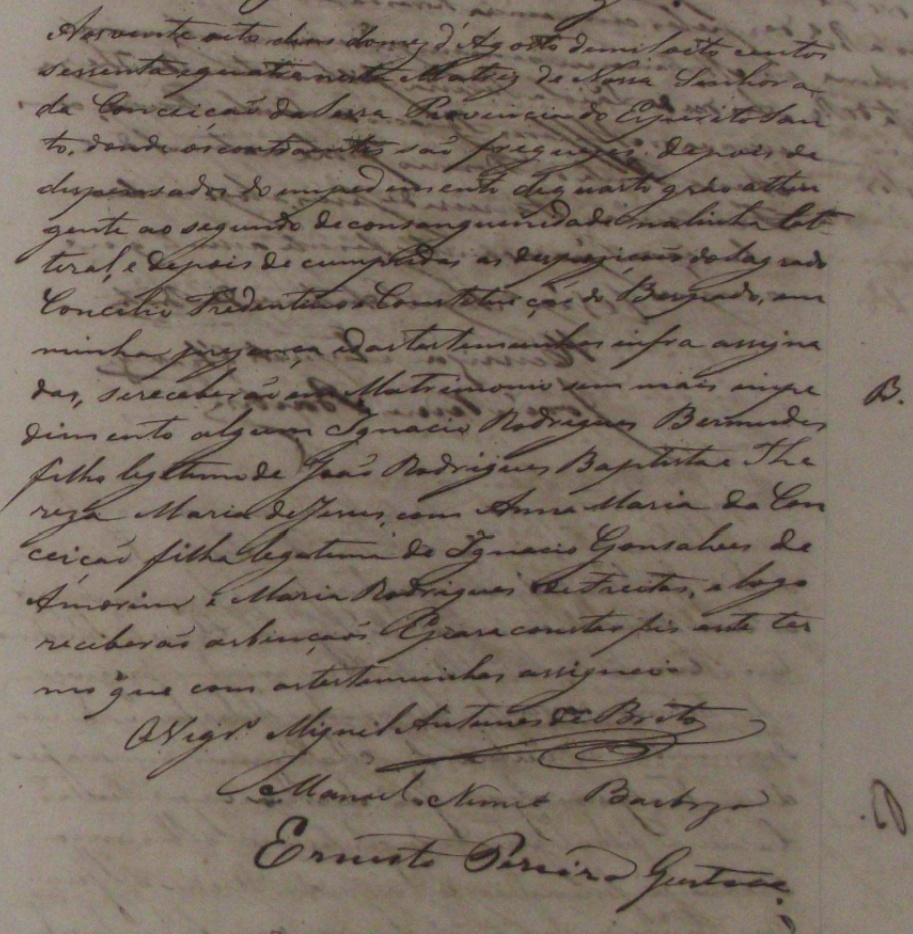 Aos vinte oito dias do mez d'Agosto de mil oito centos
sessenta e quatro nesta Matriz de Nossa Senhora
da Conceição da Serra Provincia do Espirito San
to, donde os contraentes são freguezes, depois de
dispensados do impedimento de quarto gráo attin
gente ao segundo de consanguinidade na linha lat
teral, e depois de cumpridas as disposições do Sagrado
Concilio Tredentino e Constituição do Bispado, em
minha presença, e das testemunhas infra assigna
das, se receberão em Matrimonio sem mais impe
dimento algum Ignacio Rodrigues Bermudes
filho legitimo de João Rodrigues Baptista e The
reza Maria de Jesus, com Anna Maria da Con
ceicão filha legitima de Ignacio Gonsalves de
Amorim e Maria Rodrigues de Freitas, e logo
receberão as bençãos E para constar fis este ter
mo que com as testemunhas assignei
O Vigrº Miguel Antunes de Brito
Manoel Nunes Barboza
Ernesto Pereira
B.